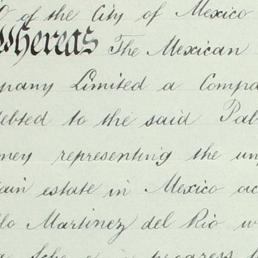 of the City of Mexico
Whereas The Mexican
mpany Limited a Compa
debted to the said Pab
ney representing the un
tain estate in Mexico ac
lo Martinez del Rio w